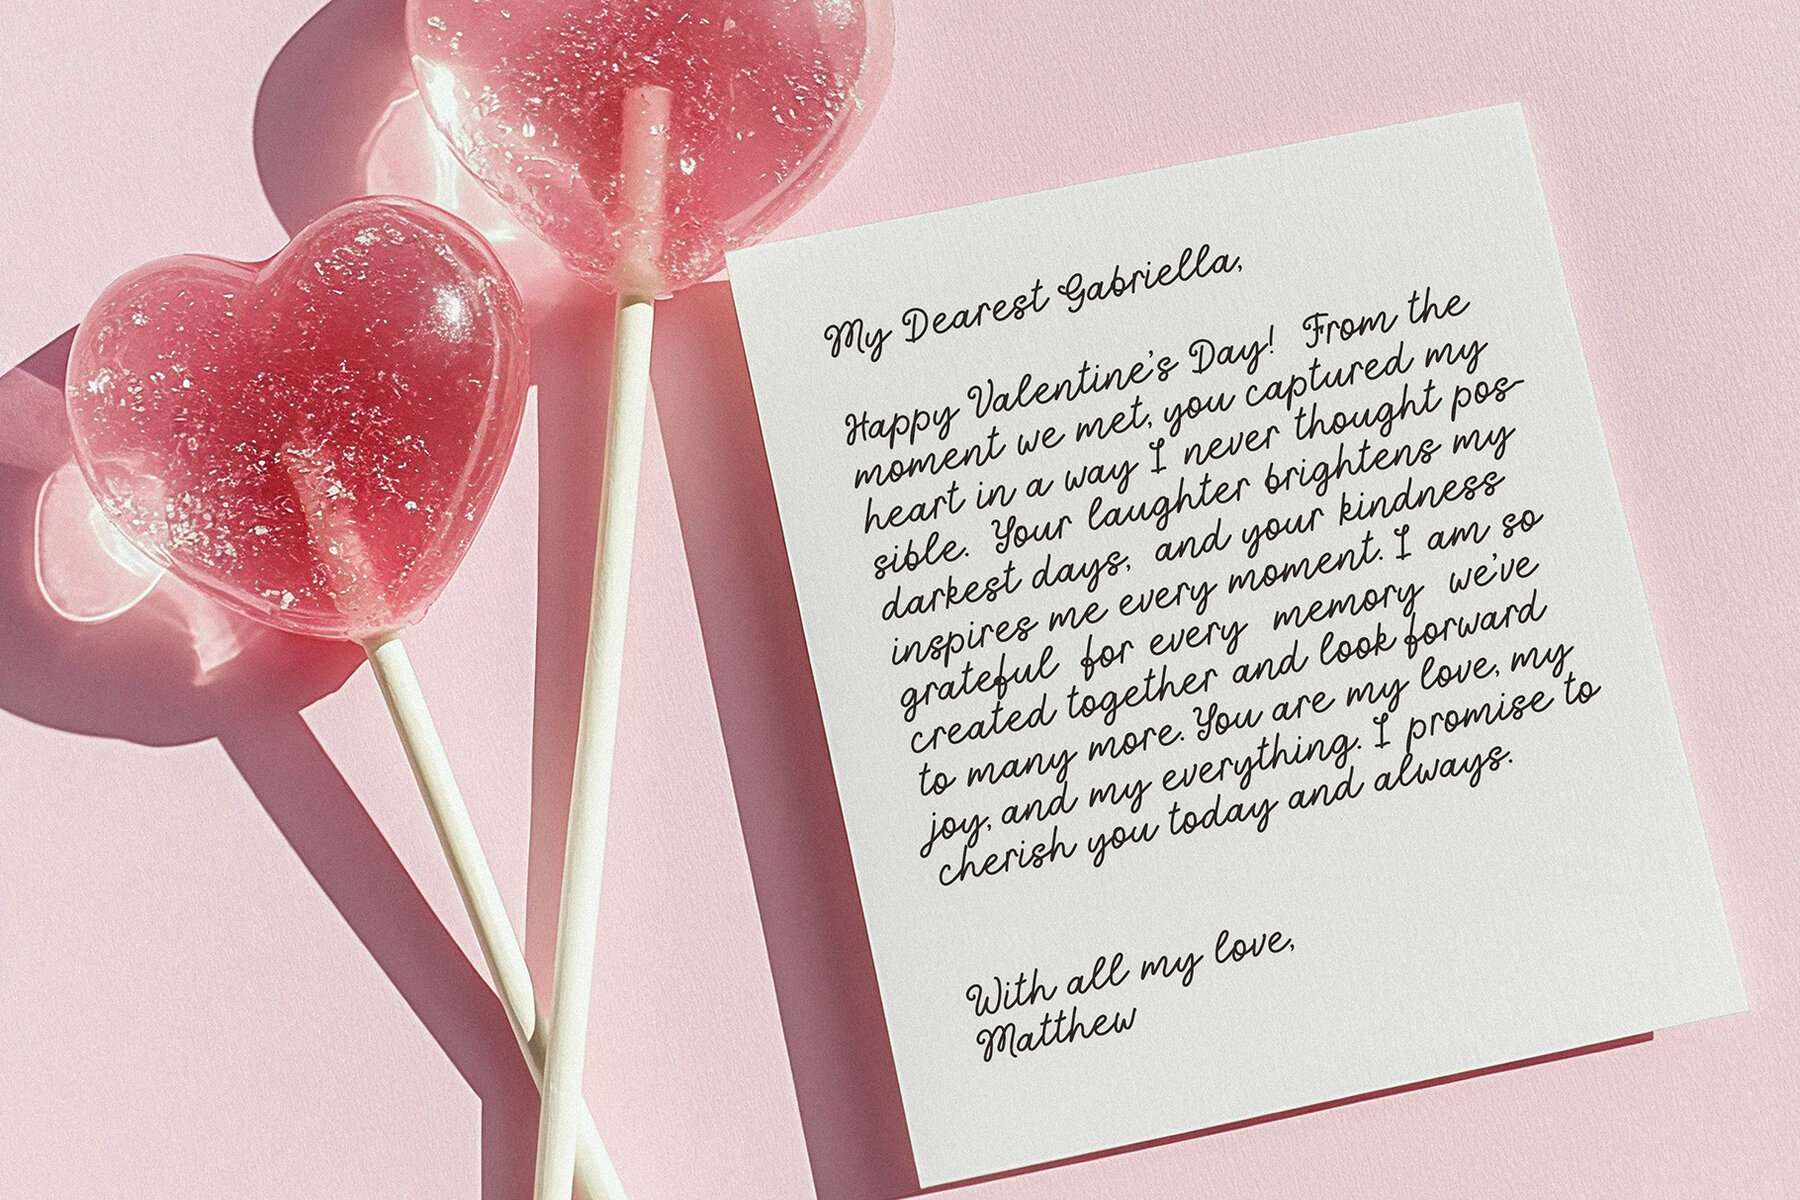 My Dearest Gabriella,
Happy Valentine's Day! From the
moment we met, you captured my
heart in a way I never thought pos-
sible. Your laughter brightens my
darkest days, and your kindness
inspires me every moment. I am so
grateful for every memory we've
created together and look forward
to many more. You are my love, my
joy, and my everything. I promise to
cherish you today and always.
With all my love,
Matthew